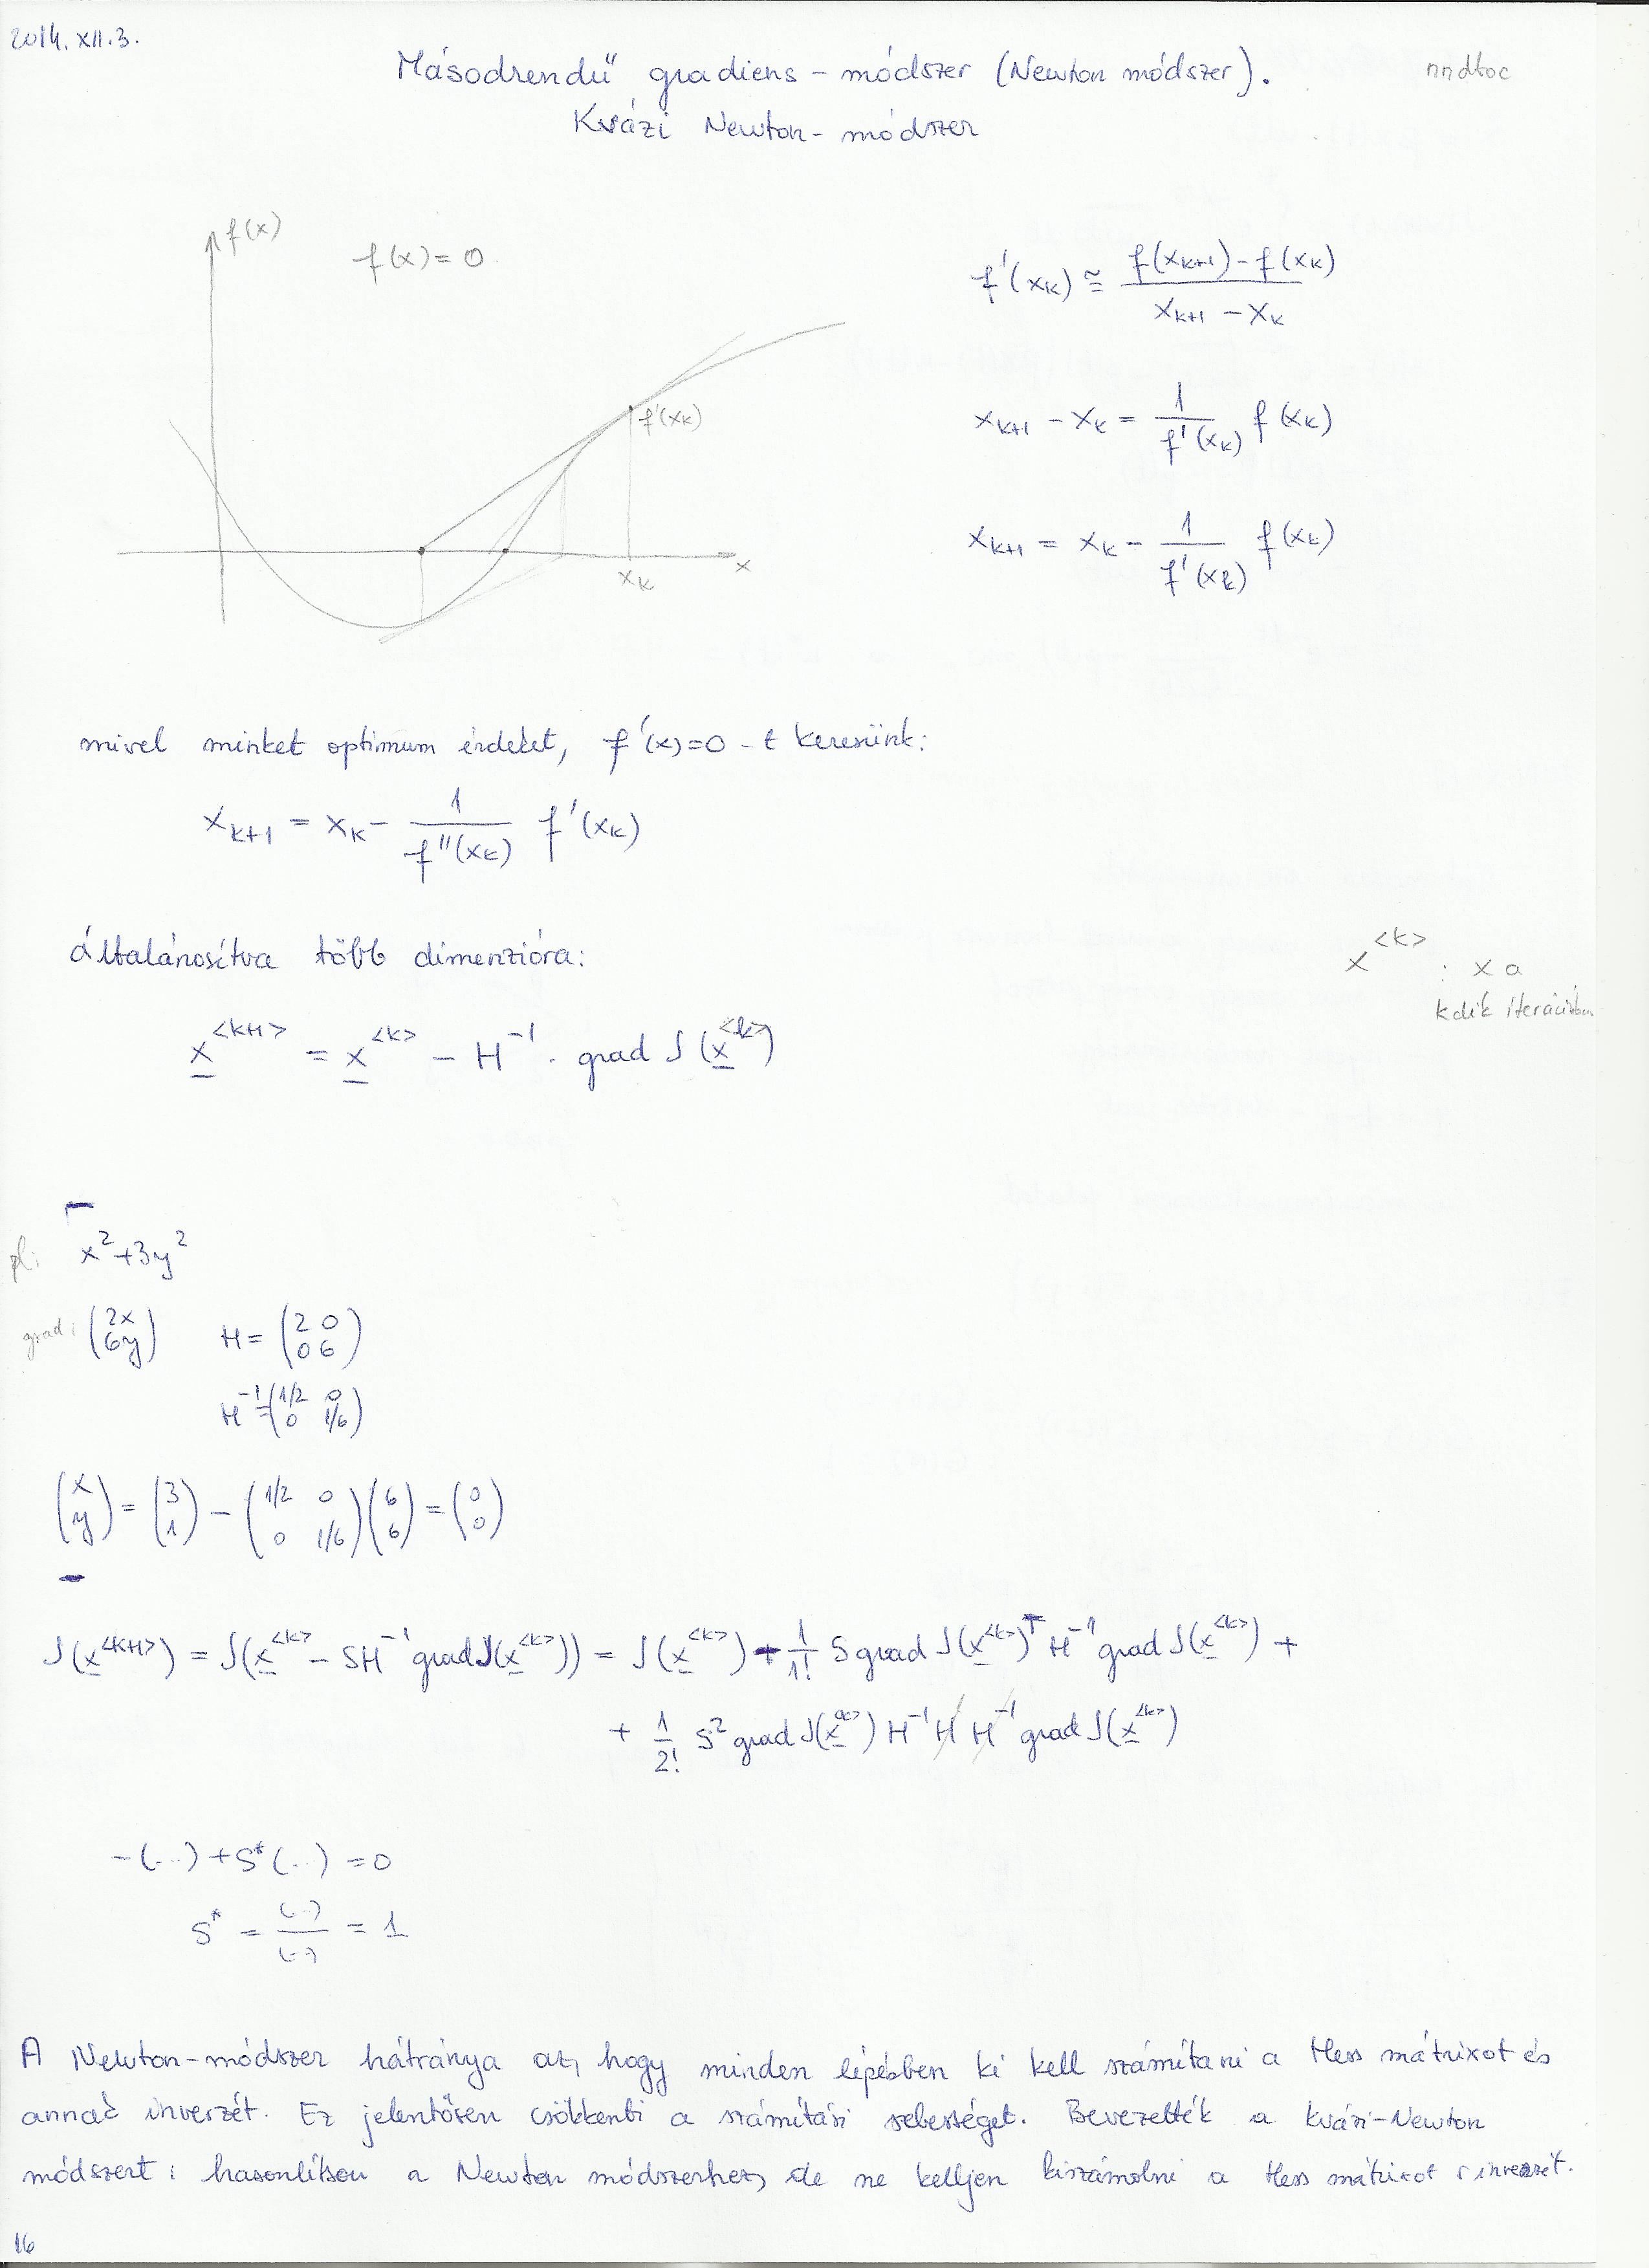 2014. XII. 3.
Másodrendű gradiens - módszer (Newton módszer).
nndtoc
Kvázi Newton - módszer
f(x)
f(x) = 0
f'(xₖ)
xₖ
x
f'(xₖ) ≅ (f(xₖ₊₁) - f(xₖ)) / (xₖ₊₁ - xₖ)
xₖ₊₁ - xₖ = 1/f'(xₖ) f(xₖ)
xₖ₊₁ = xₖ - 1/f'(xₖ) f(xₖ)
mivel minket optimum érdekel, f'(x)=0 -t keresünk:
xₖ₊₁ = xₖ - 1/f''(xₖ) f'(xₖ)
általánosítva több dimenzióra:
x^<k> : x a
kdik iterációban
x^<k+1> = x^<k> - H⁻¹ · grad J(x^<k>)
pl: x² + 3y²
grad: (2x 6y) H = (2 0 0 6)
H⁻¹ = (1/2 0 0 1/6)
(x y) = (3 1) - (1/2 0 0 1/6)(6 6) = (0 0)
J(x^<k+1>) = J(x^<k> - SH⁻¹ grad J(x^<k>)) = J(x^<k>) - 1/1! S grad J(x^<k>)ᵀ H⁻¹ grad J(x^<k>) +
+ 1/2! S² grad J(x^<k>) H⁻¹ H H⁻¹ grad J(x^<k>)
-(...) + S*(...) = 0
S* = (...)/(...) = 1
A Newton-módszer hátránya az, hogy minden lépésben ki kell számítani a Hess mátrixot és
annak inverzét. Ez jelentősen csökkenti a számítási sebességet. Bevezették a kvázi-Newton
módszert: hasonlítson a Newton módszerhez, de ne kelljen kiszámolni a Hess mátrixot s inverzét.
16